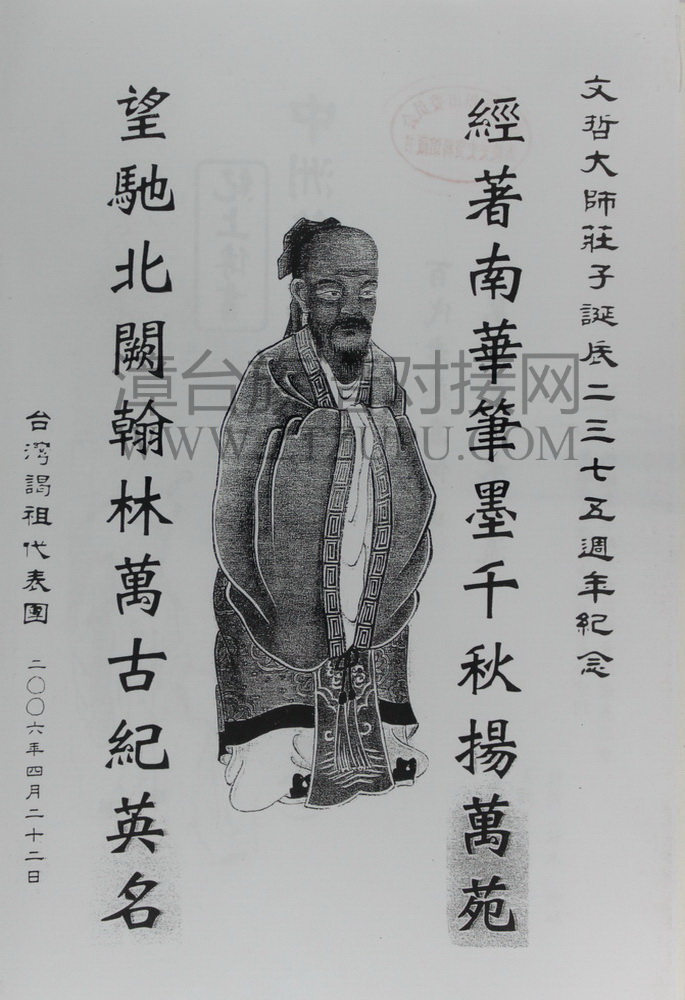 文哲大師莊子誕辰二三七五週年紀念
經著南華筆墨千秋揚萬苑
望馳北闕翰林萬古紀英名
台灣謁祖代表團 二〇〇六年四月二十二日
漳台族谱对接网
WWW.ZTZUPU.COM